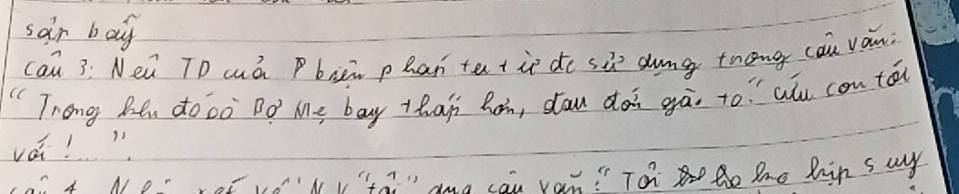 sặn bẫy
Câu 3: Nêu TD của P biện phán tu từ đc sử dụng trong câu văn:
"Trong khi đó cò Bợ Mẹ bay thấp hơn, đau đớn gào to: "cứu con tôi
với!...".
Câu 4 "tôi" câu văn: "Tôi suy